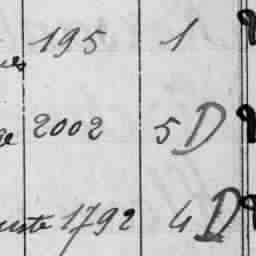 195 1
2002 5 D
1792 4 D